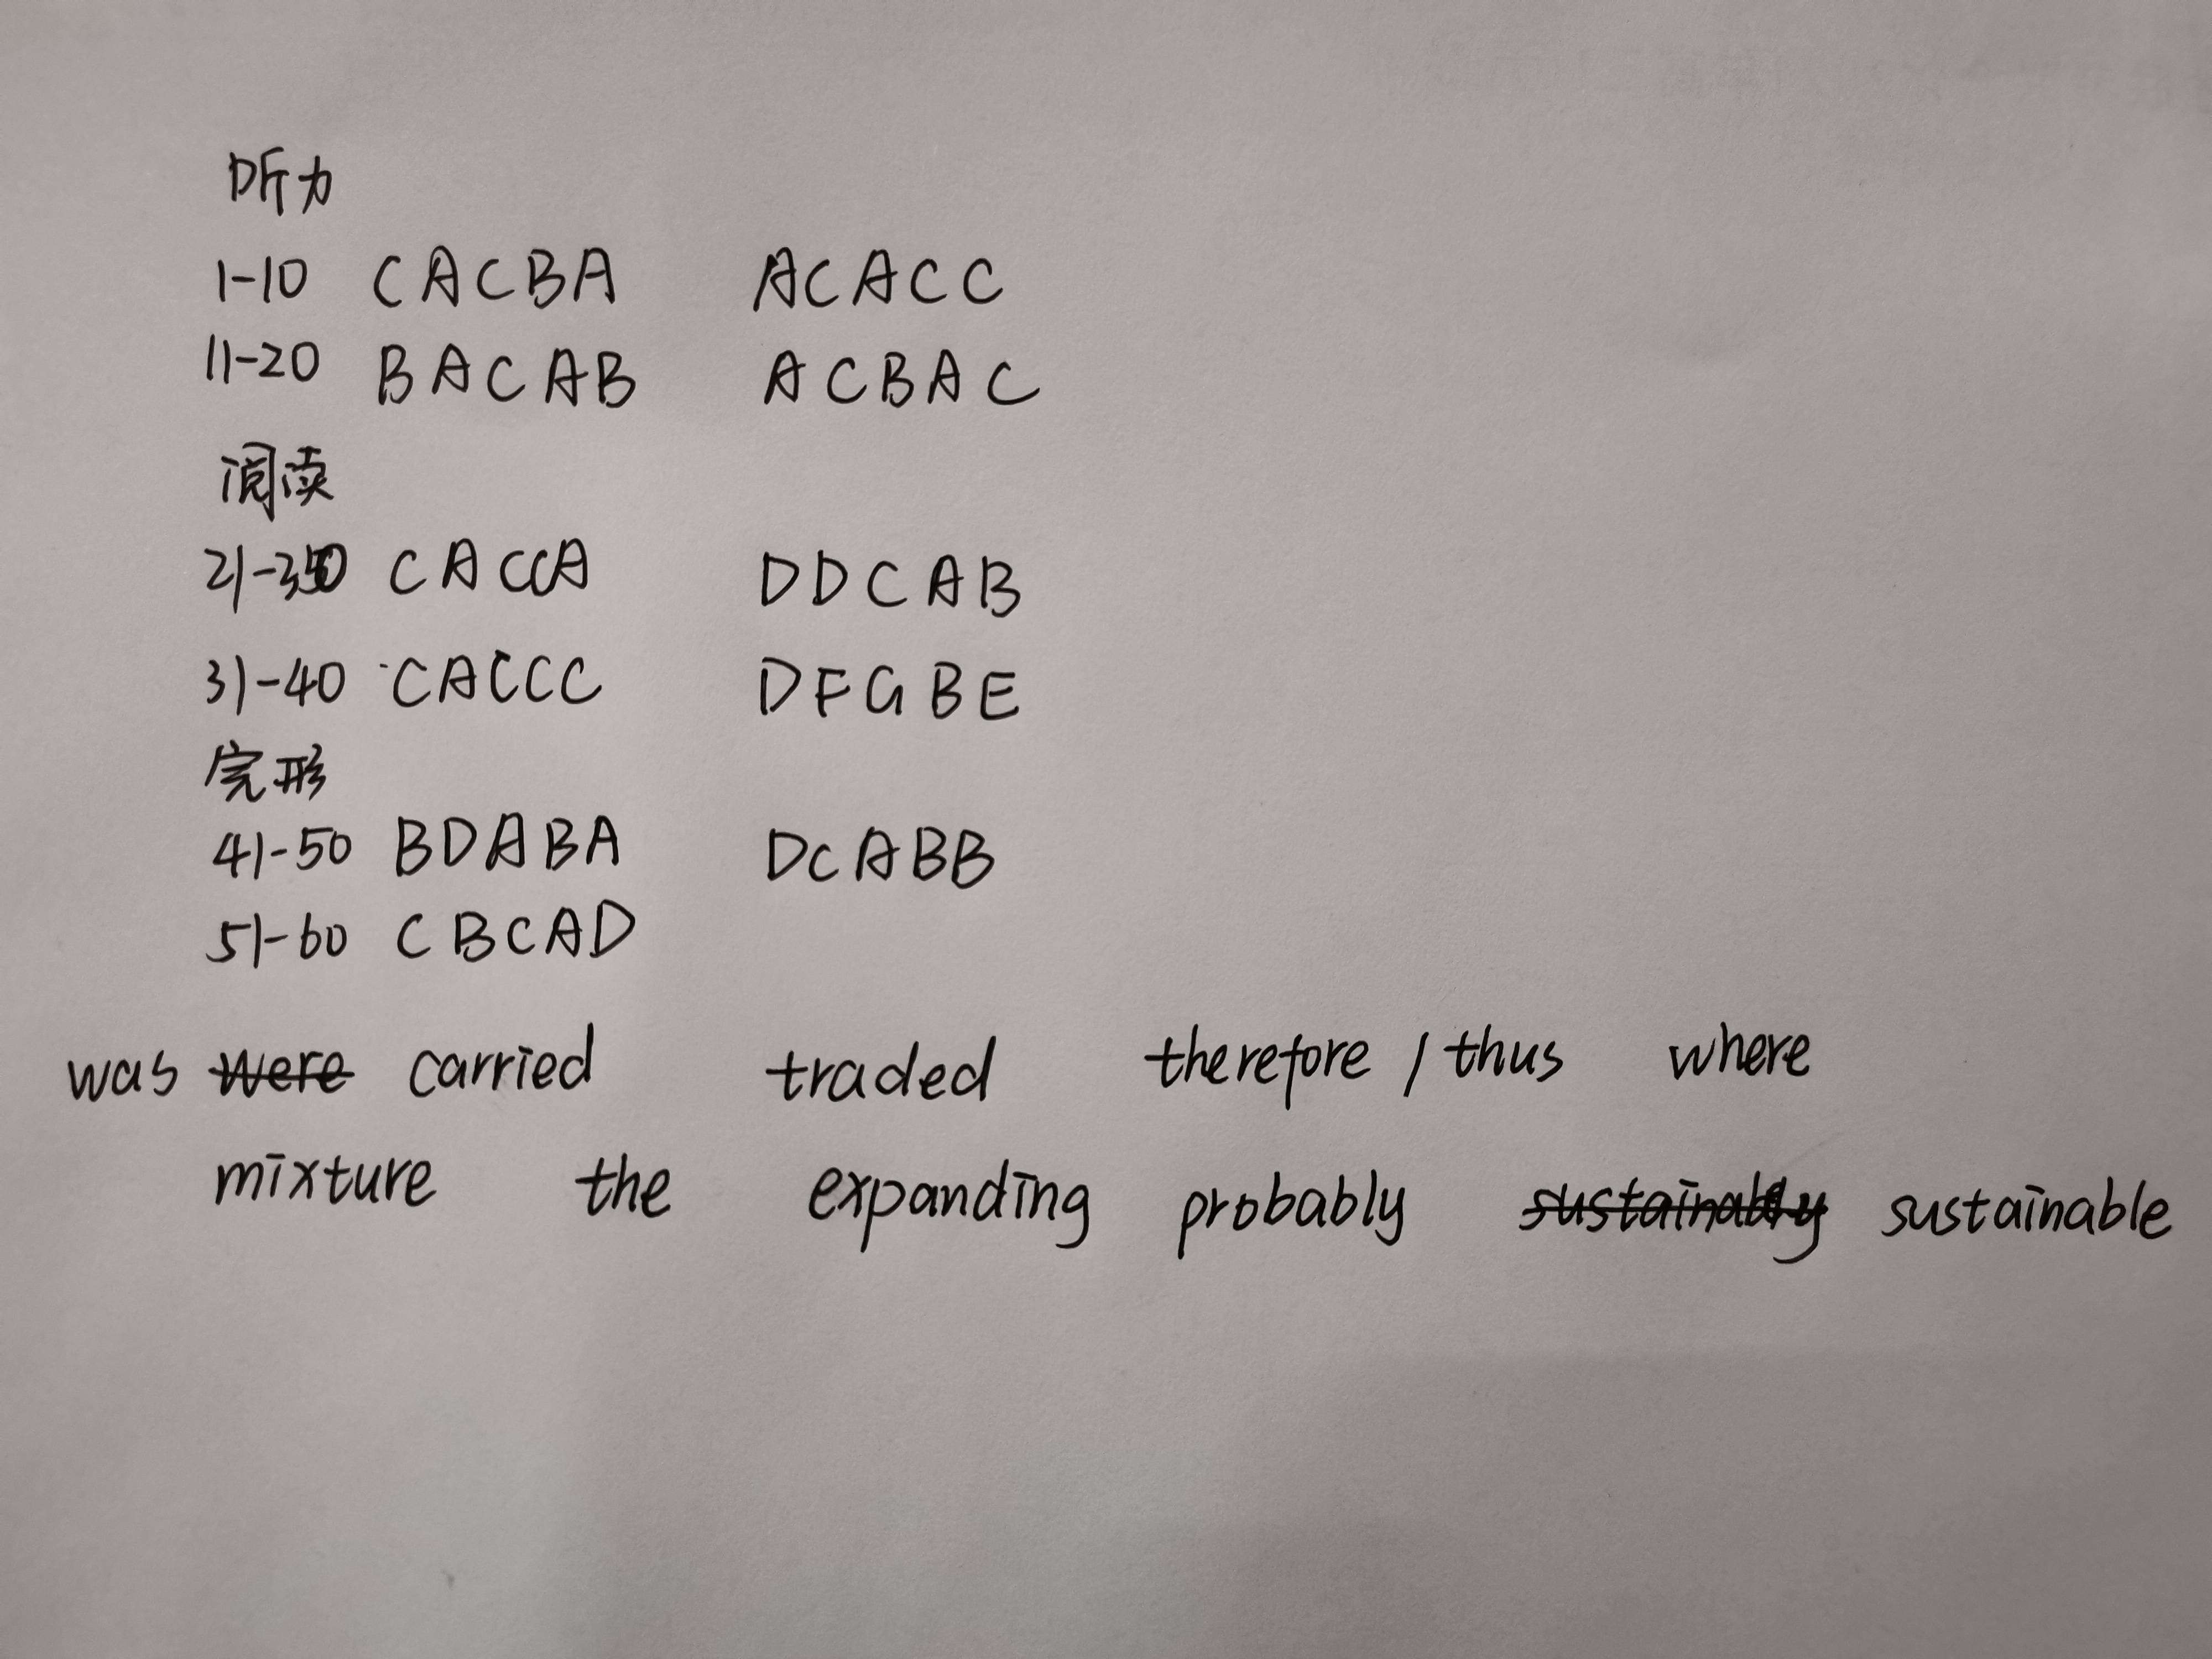 听力
1-10 CACBA ACACC
11-20 BACAB ACBAC
阅读
21-30 CACCA DDCAB
31-40 CACCC DFGBE
完形
41-50 BDABA DCABB
51-60 CBCAD
was were carried traded therefore / thus where
mixture the expanding probably sustainably sustainable